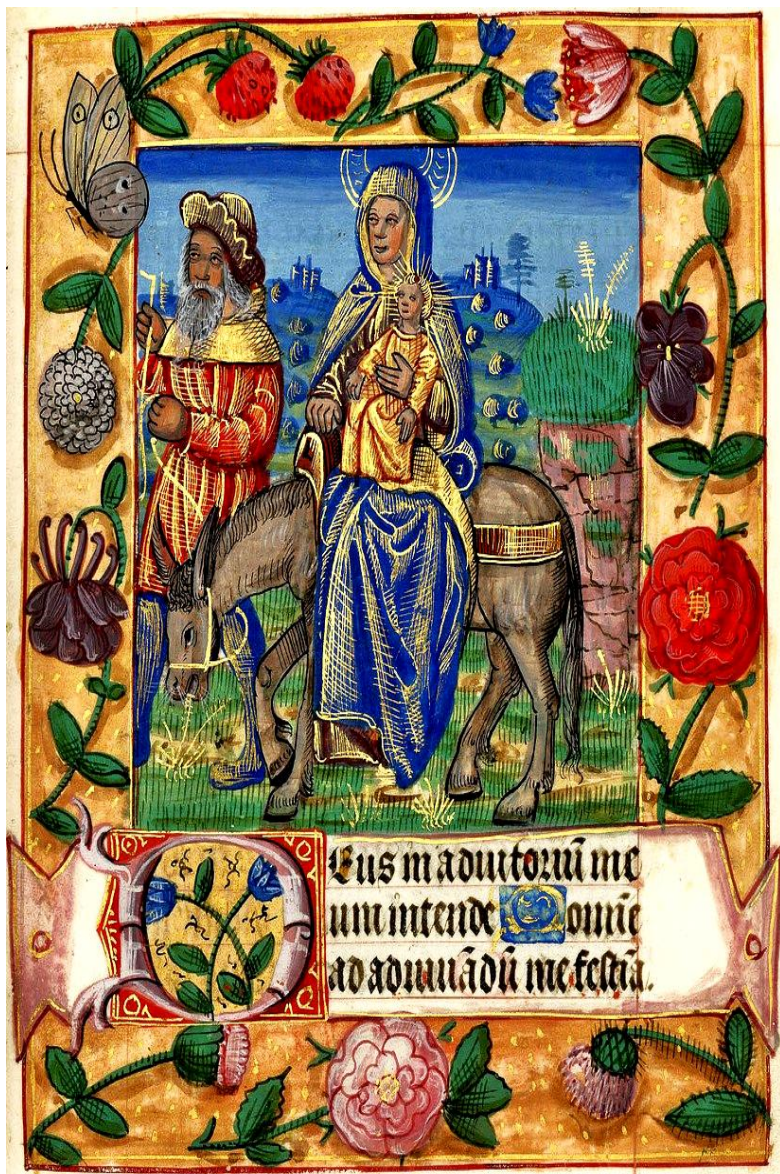 Deus in adiutoriū me
um intende Domine
ad adiuuādū me festīa.